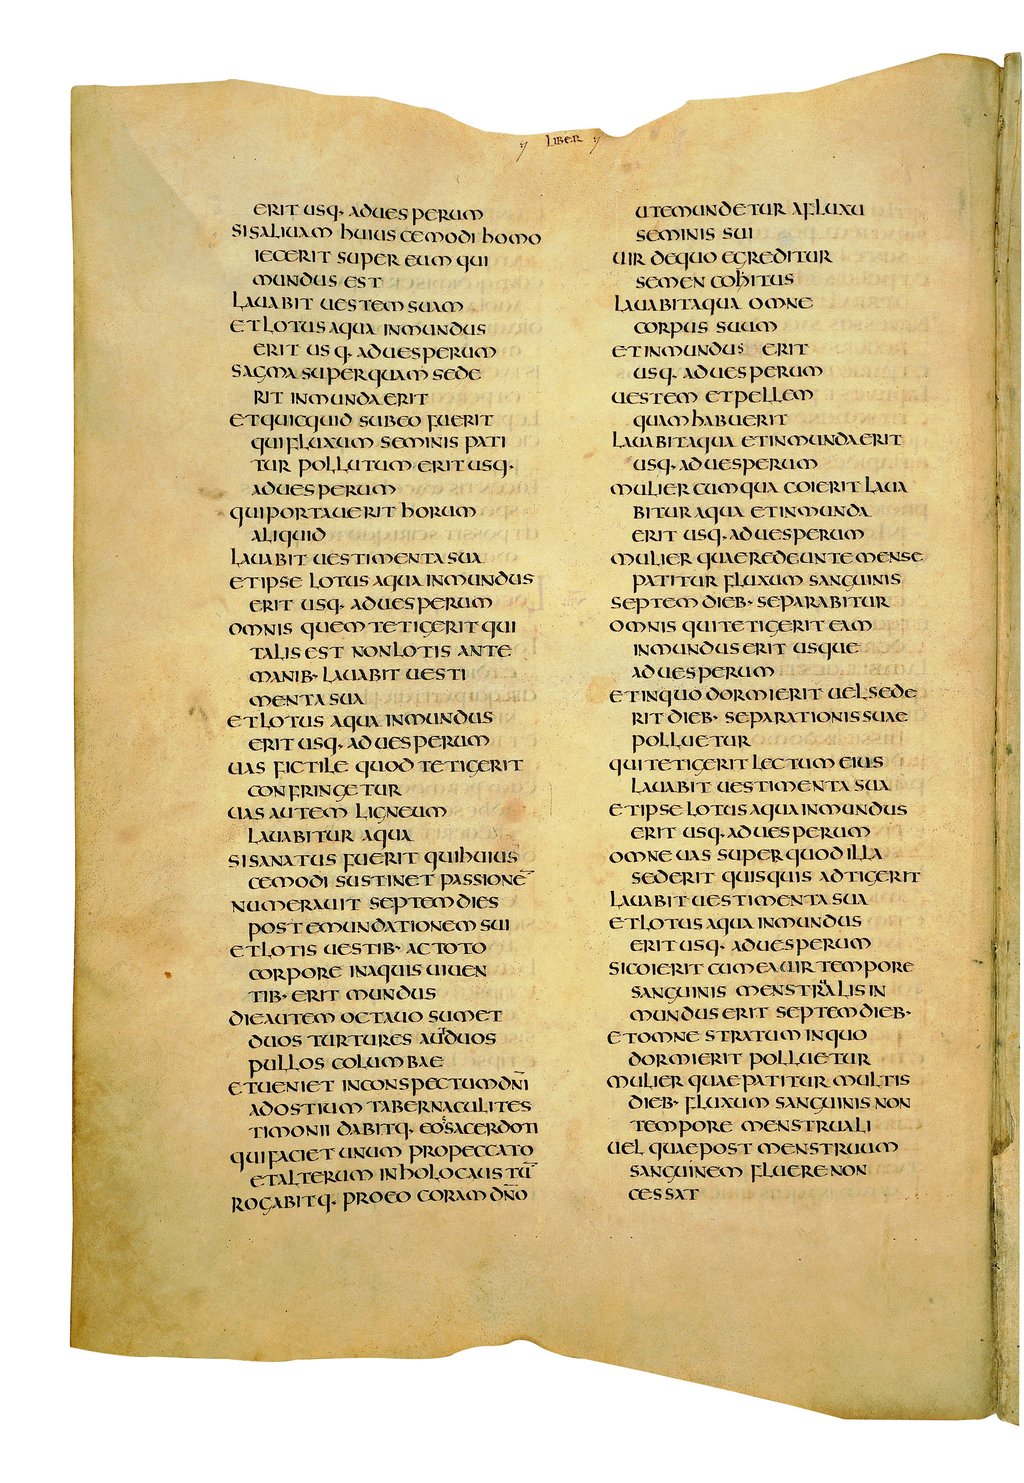 LIBER
ERIT USQ· AD UESPERUM
SI SALIUAM HUIUSCEMODI HOMO
IECERIT SUPER EUM QUI
MUNDUS EST
LAUABIT UESTEM SUAM
ET LOTUS AQUA INMUNDUS
ERIT USQ· AD UESPERUM
SAGMA SUPER QUAM SEDE
RIT INMUNDA ERIT
ET QUICQUID SUB EO FUERIT
QUI FLUXUM SEMINIS PATI
TUR POLLUTUM ERIT USQ·
AD UESPERUM
QUI PORTAUERIT HORUM
ALIQUID
LAUABIT UESTIMENTA SUA
ET IPSE LOTUS AQUA INMUNDUS
ERIT USQ· AD UESPERUM
OMNIS QUEM TETIGERIT QUI
TALIS EST NON LOTIS ANTE
MANIB· LAUABIT UESTI
MENTA SUA
ET LOTUS AQUA INMUNDUS
ERIT USQ· AD UESPERUM
UAS FICTILE QUOD TETIGERIT
CONFRINGETUR
UAS AUTEM LIGNEUM
LAUABITUR AQUA
SI SANATUS FUERIT QUI HUIUS
CEMODI SUSTINET PASSIONĒ
NUMERAUIT SEPTEM DIES
POST EMUNDATIONEM SUI
ET LOTIS UESTIB· AC TOTO
CORPORE IN AQUIS UIUEN
TIB· ERIT MUNDUS
DIE AUTEM OCTAUO SUMET
DUOS TURTURES AUT DUOS
PULLOS COLUMBAE
ET UENIET IN CONSPECTUM DN̄I
AD OSTIUM TABERNACULI TES
TIMONII DABITQ· EOS SACERDOTI
QUI FACIET UNUM PRO PECCATO
ET ALTERUM IN HOLOCAUSTŪ
ROGABITQ· PRO EO CORAM DN̄O
UT EMUNDETUR A FLUXU
SEMINIS SUI
UIR DE QUO EGREDITUR
SEMEN COHITUS
LAUABIT AQUA OMNE
CORPUS SUUM
ET INMUNDUS ERIT
USQ· AD UESPERUM
UESTEM ET PELLEM
QUAM HABUERIT
LAUABIT AQUA ET INMUNDA ERIT
USQ· AD UESPERUM
MULIER CUM QUA COIERIT LAUA
BITUR AQUA ET INMUNDA
ERIT USQ· AD UESPERUM
MULIER QUAE REDEUNTE MENSE
PATITUR FLUXUM SANGUINIS
SEPTEM DIEB· SEPARABITUR
OMNIS QUI TETIGERIT EAM
INMUNDUS ERIT USQUE
AD UESPERUM
ET IN QUO DORMIERIT UEL SEDE
RIT DIEB· SEPARATIONIS SUAE
POLLUETUR
QUI TETIGERIT LECTUM EIUS
LAUABIT UESTIMENTA SUA
ET IPSE LOTUS AQUA INMUNDUS
ERIT USQ· AD UESPERUM
OMNE UAS SUPER QUOD ILLA
SEDERIT QUISQUIS ADTIGERIT
LAUABIT UESTIMENTA SUA
ET LOTUS AQUA INMUNDUS
ERIT USQ· AD UESPERUM
SI COIERIT CUM EA UIR TEMPORE
SANGUINIS MENSTRUALIS IN
MUNDUS ERIT SEPTEM DIEB·
ET OMNE STRATUM IN QUO
DORMIERIT POLLUETUR
MULIER QUAE PATITUR MULTIS
DIEB· FLUXUM SANGUINIS NON
TEMPORE MENSTRUALI
UEL QUAE POST MENSTRUUM
SANGUINEM FLUERE NON
CESSAT